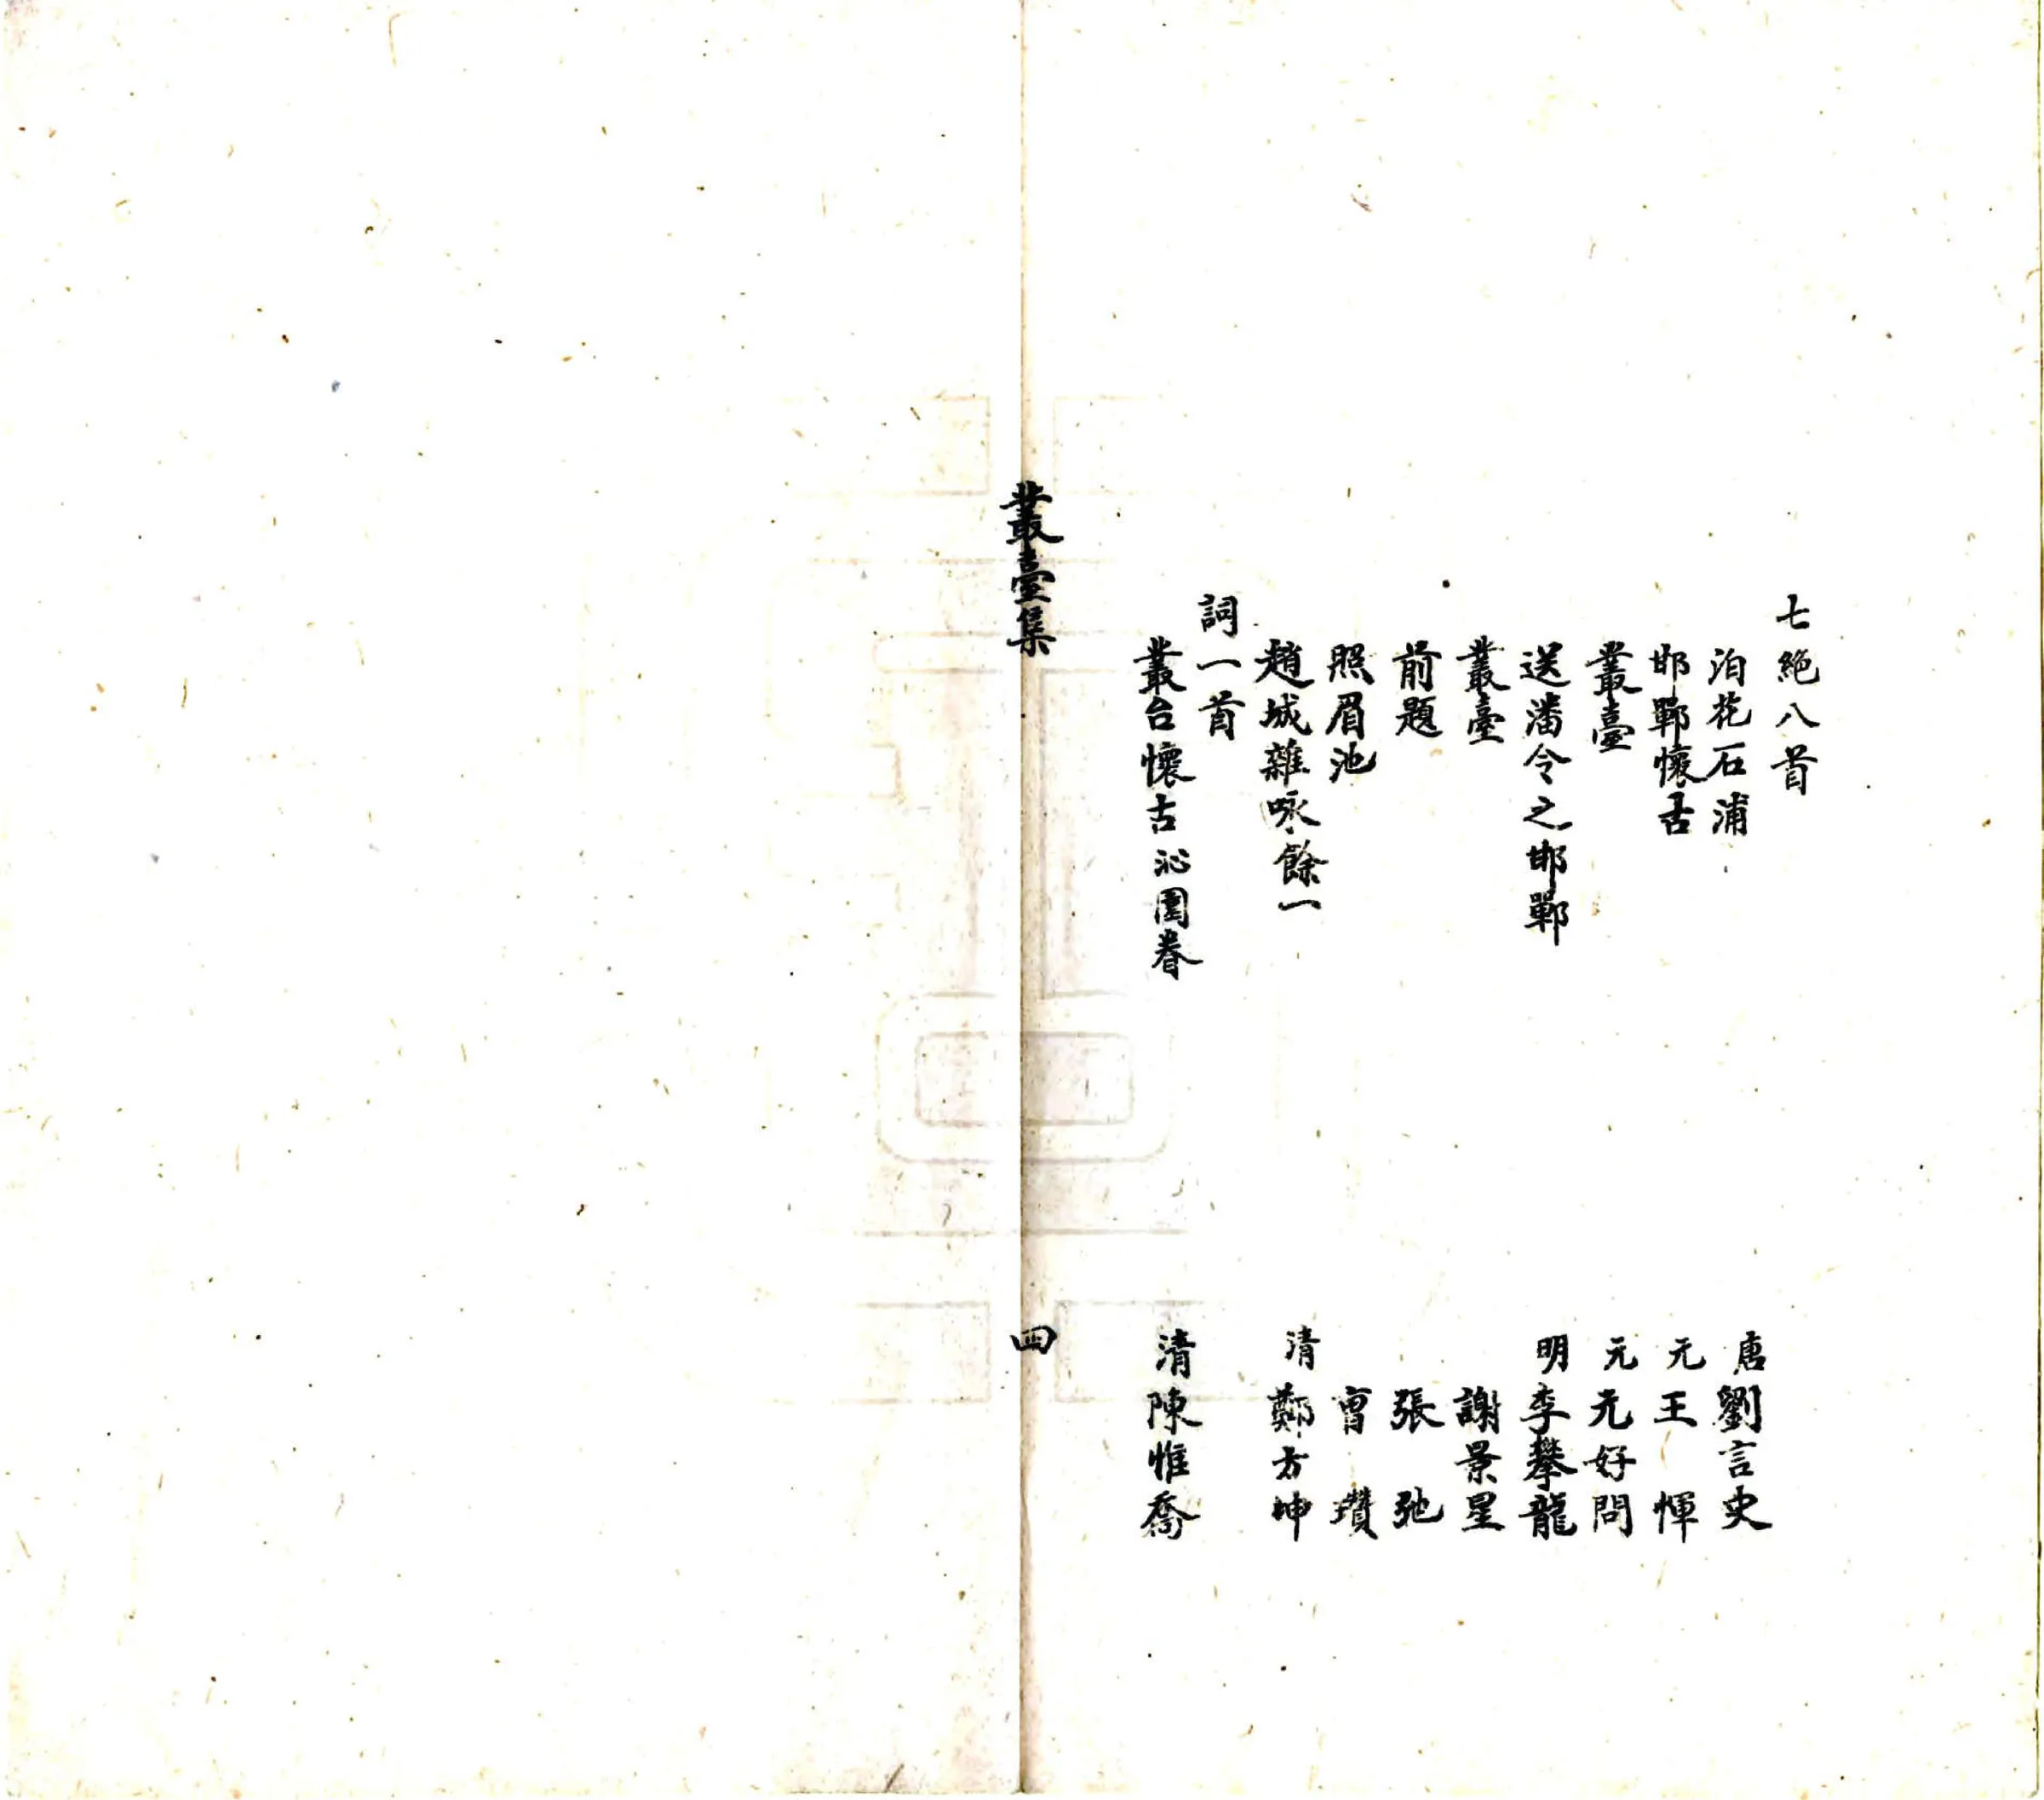 七絶八首
泊花石浦 唐 劉言史
邯鄲懷古 元 王惲
叢臺 元 元好問
送潘令之邯鄲 明 李攀龍
叢臺 謝景星
前題 張弛
照眉池 曾瓚
趙城雜咏餘一 清 鄭方坤
詞一首
叢台懷古沁園春 清 陳惟喬
叢臺集 四